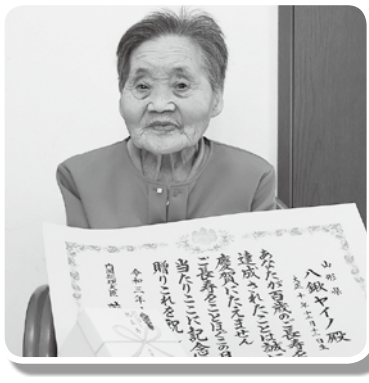 山形県
八鍬ヤイノ殿
あなたが百歳のご長寿を
達成されたことは誠に
慶賀にたえません
ご長寿をことほぎこの
当たりここに記念
贈りこれを祝
令和三年
内閣総理大臣